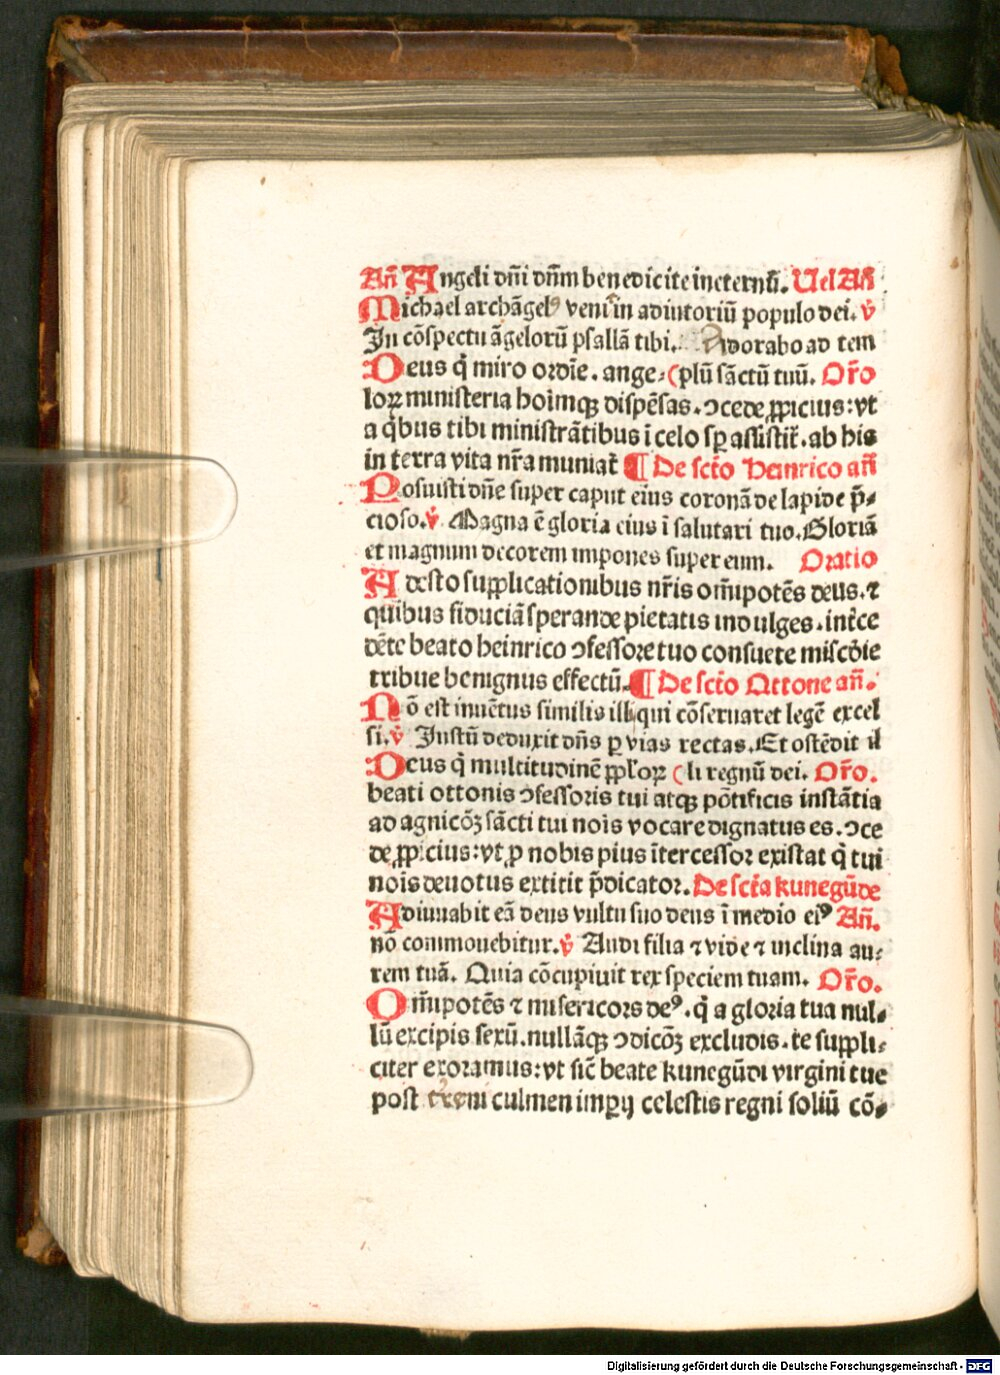 Añ Angeli dñi dñm benedicite ineternũ. Uel Añ
Michael archãgelꝰ veni in adiutoriũ populo dei. v̓
In cõspectu ãgelorũ psallã tibi. Adorabo ad tem
Deus q̃ miro ordīe. ange⸗(plũ sãctũ tuũ. Oro
loꝝ ministeria hoĩmqꝫ dispẽsas. ↄcede ꝓpicius: vt
a q̃bus tibi ministrãtibus ĩ celo sꝑ assistit̃. ab his
in terra vita nr̃a muniat̃ ¶ De scto Heinrico añ
Posuisti dñe super caput eius coronã de lapide p̃⸗
cioso. v̓ Magna ẽ gloria eius ĩ salutari tuo. Gloriã
et magnum decorem impones super eum. Oratio
Adesto supplicationibus nr̃is om̃ipotẽs deus. ⁊
quibus fiduciã sperande pietatis indulges. intẽce
dẽte beato heinrico ↄfessore tuo consuete mis̃cõie
tribue benignus effectũ. ¶ De scto Ottone añ.
Nõ est inuẽtus similis illi qui cõseruaret legẽ excel
si. v̓ Justũ deduxit dñs ꝑ vias rectas. Et ostẽdit il
Deus q̃ multitudinẽ ppl̓oꝝ (li regnũ dei. Oro.
beati ottonis ↄfessoris tui atqꝫ põtificis instãtia
ad agnicõꝫ sãcti tui nois vocare dignatus es. ↄce
de ꝓpicius: vt ꝓ nobis pius ĩtercessor existat q̃ tui
nois deuotus extitit p̃dicator. De scta kunegũde
Adiuuabit eã deus vultu suo deus ĩ medio eiꝰ Añ.
nõ commouebitur. v̓ Audi filia ⁊ vide ⁊ inclina au⸗
rem tuã. Quia cõcupiuit rex speciem tuam. Oro.
Om̃ipotẽs ⁊ misericors deꝰ. q̃ a gloria tua nul⸗
lũ excipis sexũ. nullãqꝫ ↄdicõꝫ excludis. te suppli⸗
citer exoramus: vt sic̃ beate kunegũdi virgini tue
post culmen imꝑij celestis regni soliũ cõ⸗
Digitalisierung gefördert durch die Deutsche Forschungsgemeinschaft - DFG